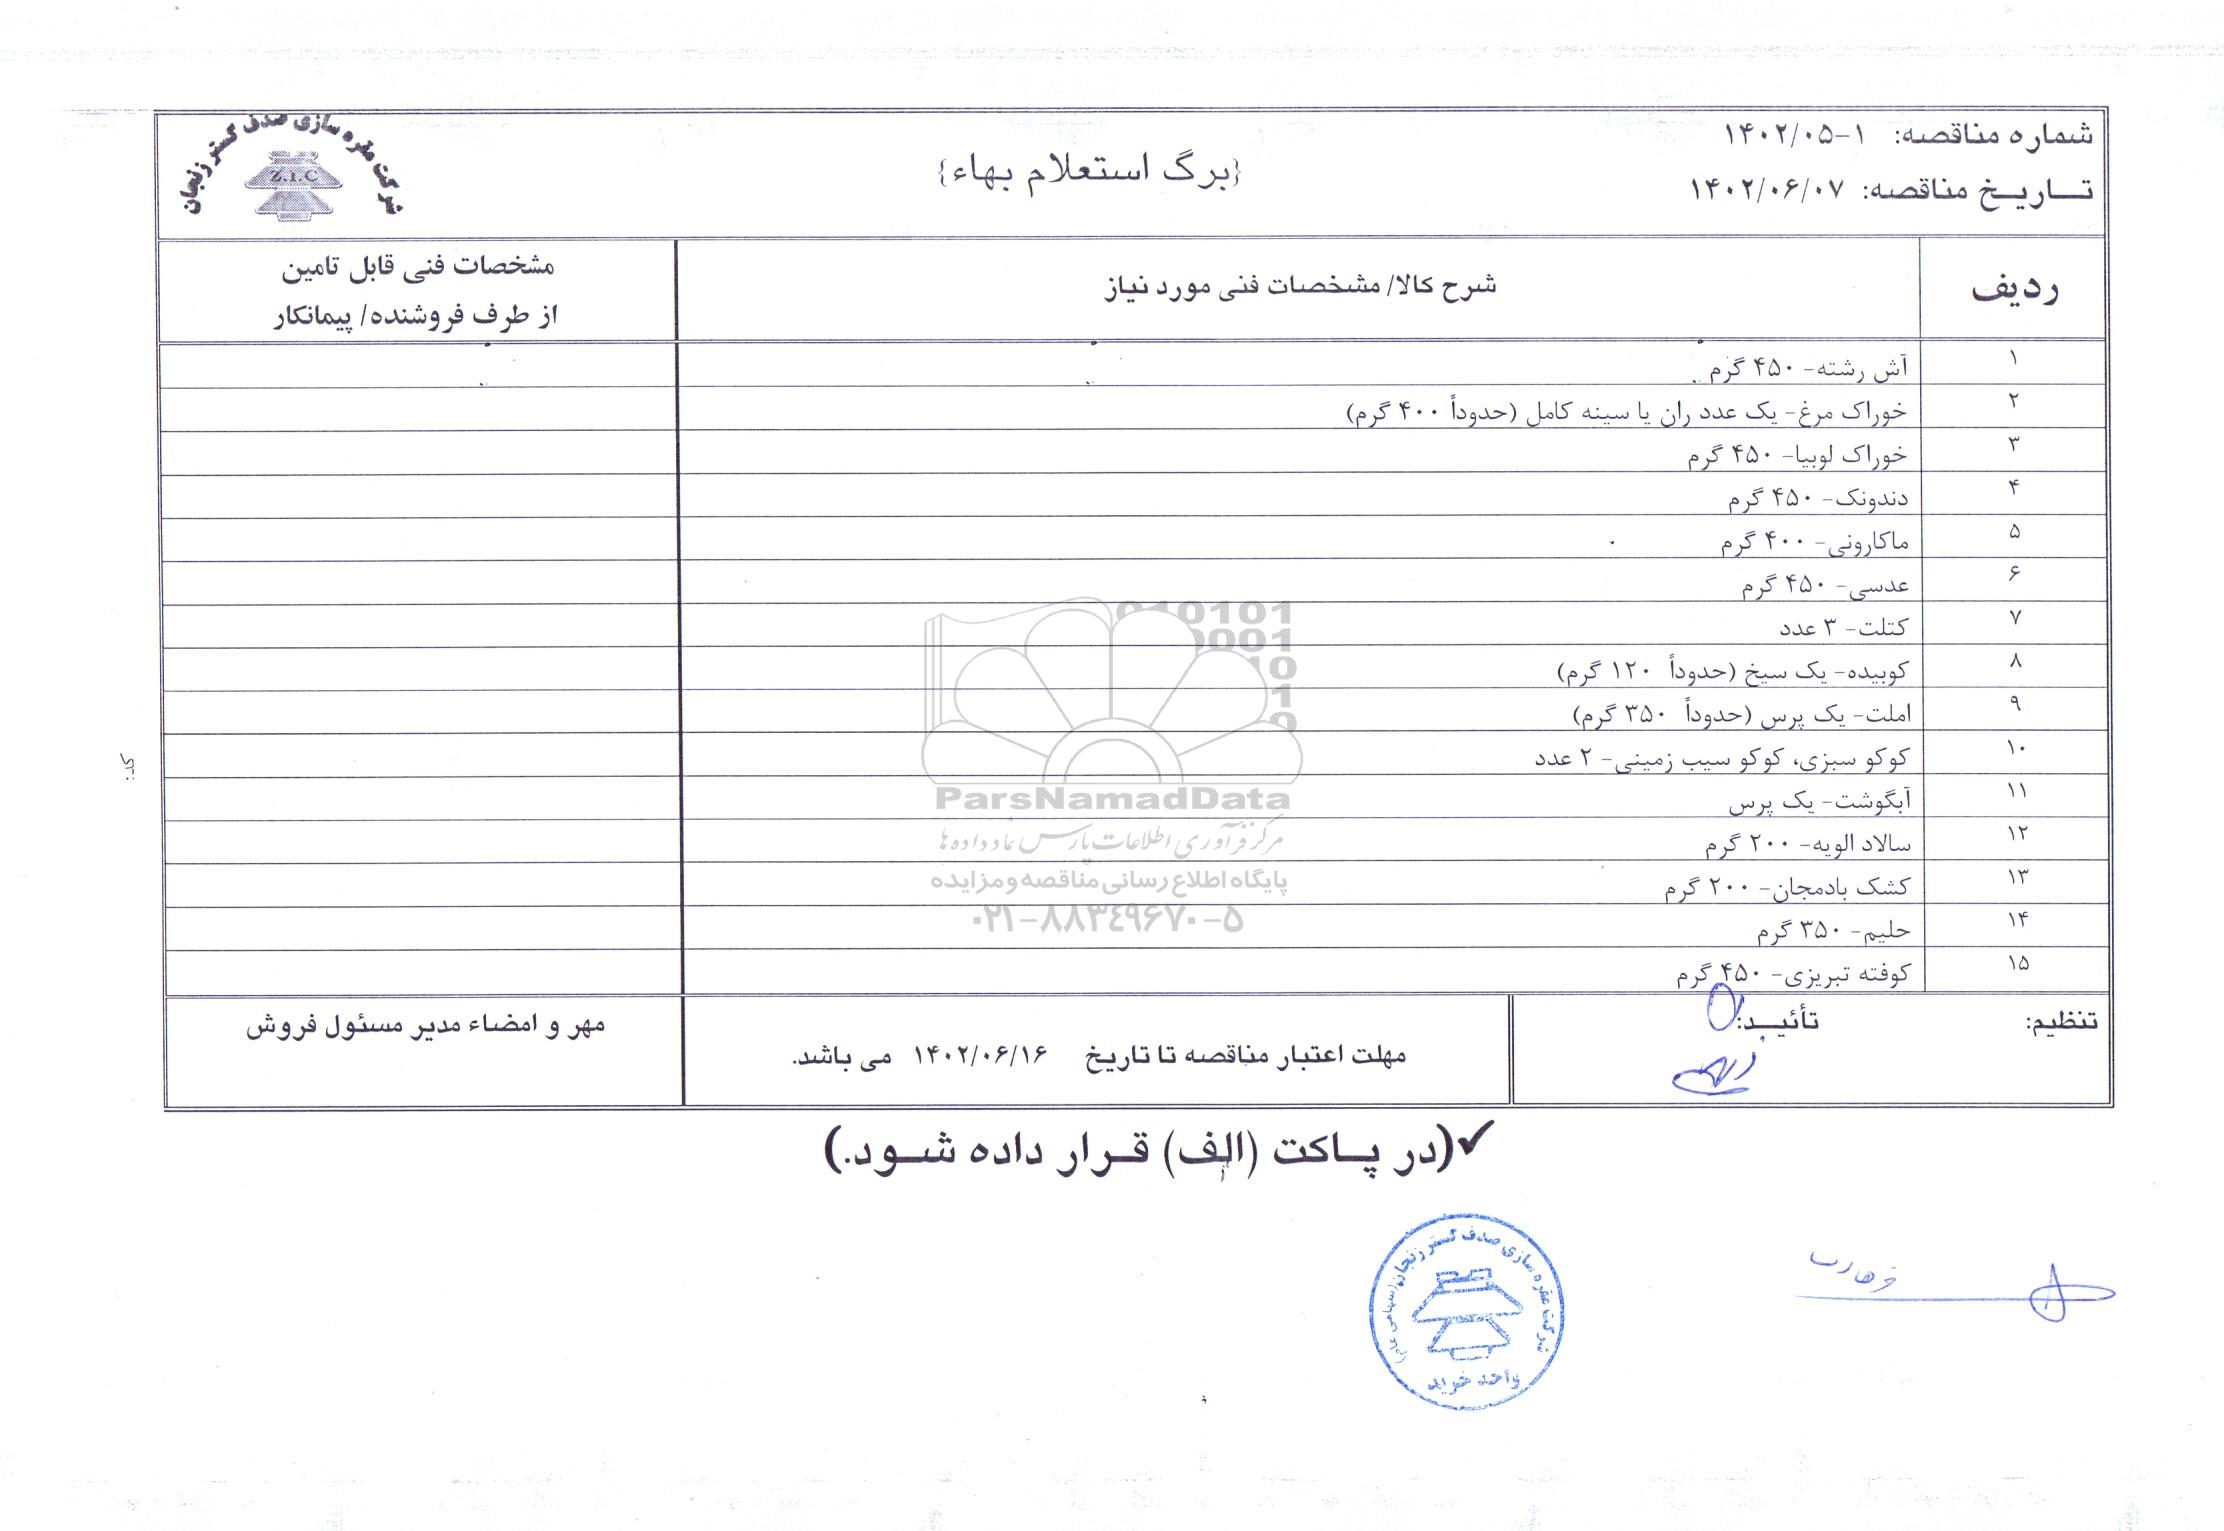 شماره مناقصه: ۱۴۰۲/۰۵-۱
تـــاریــخ مناقصه: ۱۴۰۲/۰۶/۰۷
{برگ استعلام بهاء}
شرکت مقره سازی صدف گستر زنجان
Z.I.C
ردیف
شرح کالا/ مشخصات فنی مورد نیاز
مشخصات فنی قابل تامین
از طرف فروشنده/ پیمانکار
۱ آش رشته- ۴۵۰ گرم
۲ خوراک مرغ- یک عدد ران یا سینه کامل (حدوداً ۴۰۰ گرم)
۳ خوراک لوبیا- ۴۵۰ گرم
۴ دندونک- ۴۵۰ گرم
۵ ماکارونی- ۴۰۰ گرم
۶ عدسی- ۴۵۰ گرم
۷ کتلت- ۳ عدد
۸ کوبیده- یک سیخ (حدوداً ۱۲۰ گرم)
۹ املت- یک پرس (حدوداً ۳۵۰ گرم)
۱۰ کوکو سبزی، کوکو سیب زمینی- ۲ عدد
۱۱ آبگوشت- یک پرس
۱۲ سالاد الویه- ۲۰۰ گرم
۱۳ کشک بادمجان- ۲۰۰ گرم
۱۴ حلیم- ۳۵۰ گرم
۱۵ کوفته تبریزی- ۴۵۰ گرم
ParsNamadData
مرکز فرآوری اطلاعات پارس نماد داده ها
پایگاه اطلاع رسانی مناقصه و مزایده
۰۲۱-۸۸۳۴۹۶۷۰-۵
کد:
تنظیم:
تأئیــد:
مهلت اعتبار مناقصه تا تاریخ ۱۴۰۲/۰۶/۱۶ می باشد.
مهر و امضاء مدیر مسئول فروش
✓(در پــاکت (الف) قــرار داده شــود.)
شرکت مقره سازی صدف گستر زنجان (سهامی عام)
واحد خرید